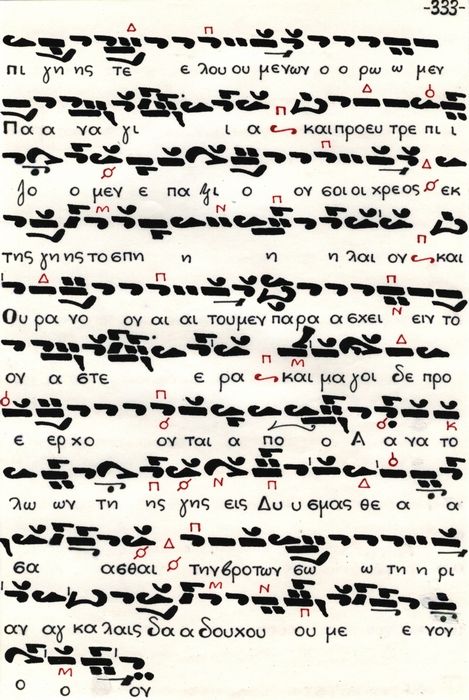 -333-
πι γη ης τε ε λου ου μενων ο ο ρω ω μεν
Πα α να γι ι α και προευ τρε πι ι
ζο ο μεν ε πα ξι ο ον σοι οι χρεος εκ
της γη ης το σπη η η η λαι ον και
Ου ρα νο ον αι αι του μεν παρα α σχει ειν το
ον α στε ε ρα και μα γοι δε προ
ε ερχο ον ται α πο ο Α α να το
λω ων τη ης γης εις Δυ υ σμας θε α α
σα ασθαι την βροτων σω ω τη η ρι
αν αγ κα λαις δα α δουχου ου με ε νον
ο ο ον